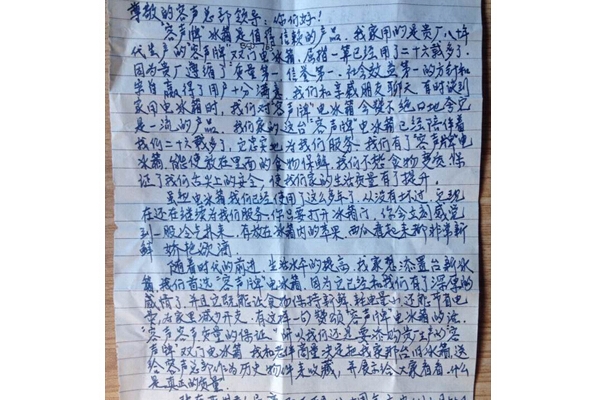 尊敬的容声总部领导：你们好！
"容声牌"冰箱是值得信赖的产品。我家用的是贵厂八十年
代生产的"容声牌"双门电冰箱，屈指一算已经用了二十六载多了。
因为贵厂遵循了质量第一，信誉第一，社会效益第一的方针和
宗旨，赢得了用户十分满意。我们和亲戚朋友聊天，有时谈到
家用电冰箱时，我们对"容声牌"电冰箱会赞不绝口地会它
是一流的产品。我们家的这台"容声牌"电冰箱已经陪伴着
我们二十六载多了，它忠实地为我们服务，我们有了"容声牌"电
冰箱，能使放在里面的食物保鲜，我们不愁食物变质，保
证了我们舌尖上的安全，使我们家的生活质量有了提升。
虽然电冰箱我们已经使用了这么多年了，从没有坏过，它现
在还在继续为我们服务，你只要打开冰箱门，你会立刻感觉
到一股冷气扑来，存放在冰箱内的苹果、西瓜看起来都非常新
鲜，娇艳欲滴。
随着时代的前进，生活水平的提高，我家想添置台新冰
箱，我们首选"容声牌"电冰箱，因为它已经和我们有了深厚的
感情了，并且它既能让食物保持新鲜，耗电量小，还能节省电
费，为家里减少开支。有这样一句赞颂"容声牌"电冰箱的话，
"容声容声质量的保证"，所以我们还是要添的贵厂的"容
声牌"双门电冰箱，我和老伴商量决定把我家那台旧冰箱，送
给容声总部作为历史物件来收藏，并展示给大家看看，什么
是真正的质量。